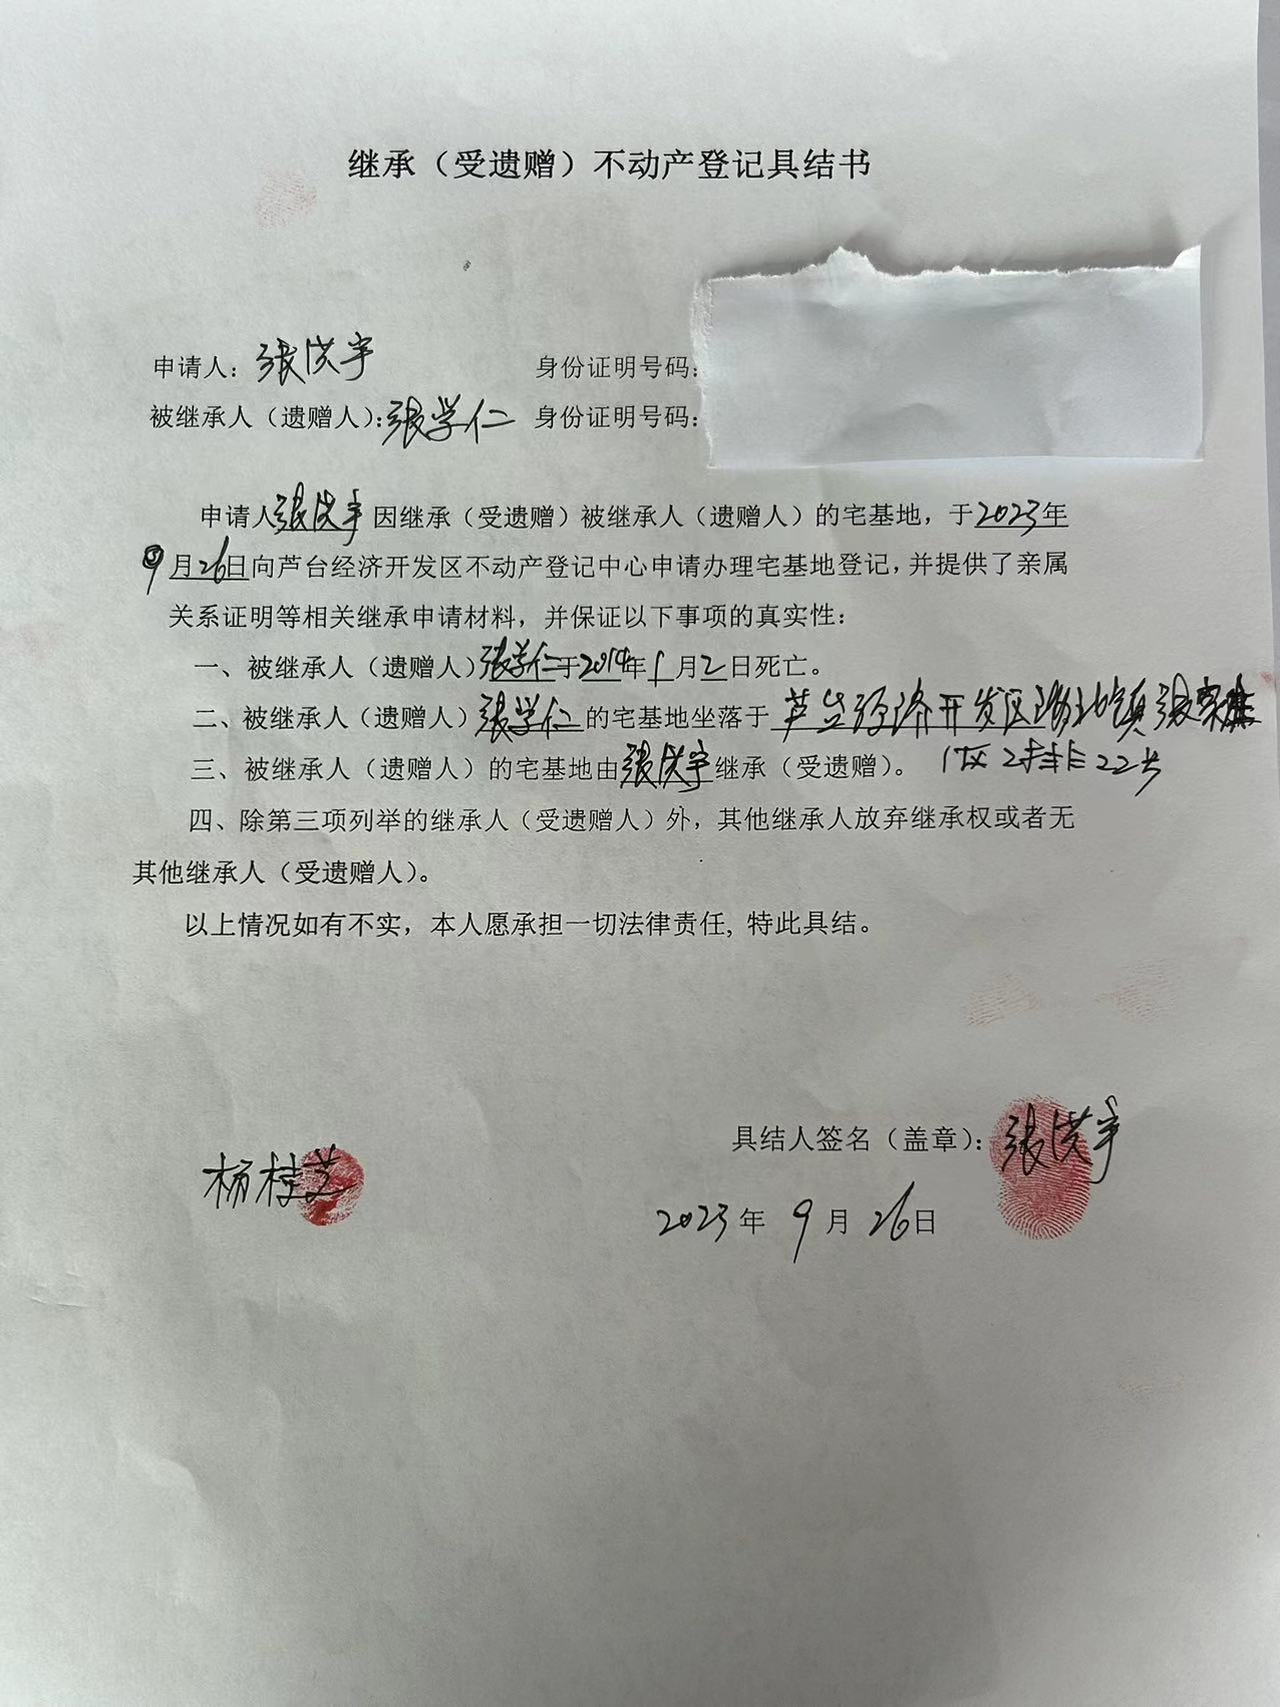 继承（受遗赠）不动产登记具结书
申请人：张洪宇 身份证明号码：
被继承人（遗赠人）：张学仁 身份证明号码：
申请人张洪宇因继承（受遗赠）被继承人（遗赠人）的宅基地，于2023年
9月26日向芦台经济开发区不动产登记中心申请办理宅基地登记，并提供了亲属
关系证明等相关继承申请材料，并保证以下事项的真实性：
一、被继承人（遗赠人）张学仁于2014年1月2日死亡。
二、被继承人（遗赠人）张学仁的宅基地坐落于芦台经济开发区海北镇张
1区2排22号
三、被继承人（遗赠人）的宅基地由张洪宇继承（受遗赠）。
四、除第三项列举的继承人（受遗赠人）外，其他继承人放弃继承权或者无
其他继承人（受遗赠人）。
以上情况如有不实，本人愿承担一切法律责任，特此具结。
具结人签名（盖章）：张洪宇
杨桂芝
2023年 9月 26日